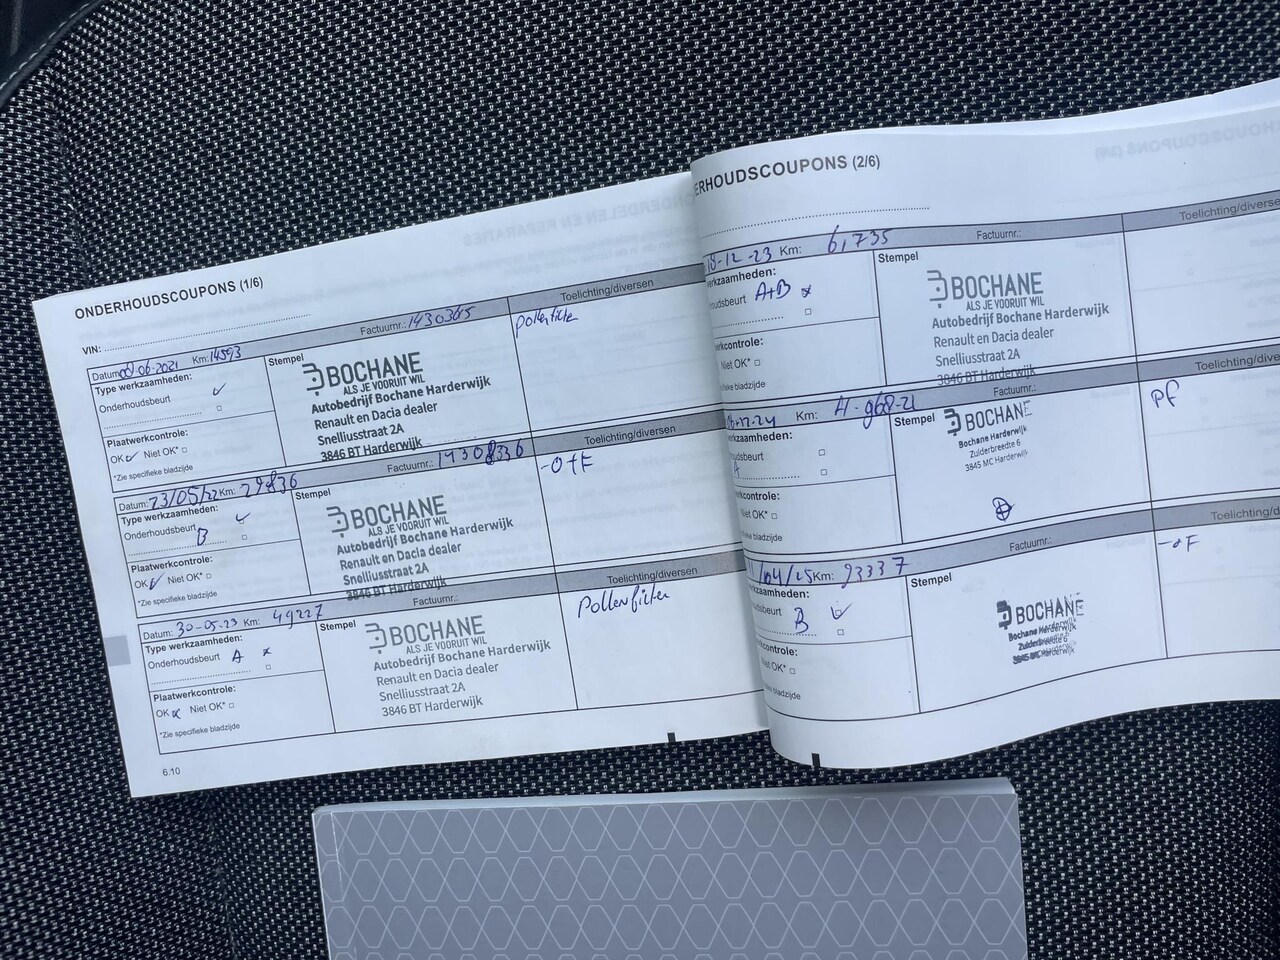 ONDERHOUDSCOUPONS (1/6)
VIN:
Datum: 09-06-2021 Km: 14593 Factuurnr.: 1430365 Toelichting/diversen
Type werkzaamheden:
Onderhoudsbeurt ✓
Plaatwerkcontrole:
OK ✓ Niet OK* □
*Zie specifieke bladzijde
Stempel
BOCHANE
ALS JE VOORUIT WIL
Autobedrijf Bochane Harderwijk
Renault en Dacia dealer
Snelliusstraat 2A
3846 BT Harderwijk
pollenfilter
Datum: 23/05/22 Km: 29836 Factuurnr.: Toelichting/diversen
Type werkzaamheden:
Onderhoudsbeurt ✓
B
Plaatwerkcontrole:
OK ✓ Niet OK* □
*Zie specifieke bladzijde
Stempel
BOCHANE
ALS JE VOORUIT WIL
Autobedrijf Bochane Harderwijk
Renault en Dacia dealer
Snelliusstraat 2A
3846 BT Harderwijk
-O+F
Datum: 30-05-23 Km: 49227 Factuurnr.: Toelichting/diversen
Type werkzaamheden:
Onderhoudsbeurt A x
Plaatwerkcontrole:
OK x Niet OK* □
*Zie specifieke bladzijde
Stempel
BOCHANE
ALS JE VOORUIT WIL
Autobedrijf Bochane Harderwijk
Renault en Dacia dealer
Snelliusstraat 2A
3846 BT Harderwijk
Pollenfilter
6.10
ERHOUDSCOUPONS (2/6)
18-12-23 Km: 61,735 Factuurnr.: Toelichting/diverse
werkzaamheden:
oudsbeurt A+B x
erkcontrole:
Niet OK* □
fieke bladzijde
Stempel
BOCHANE
ALS JE VOORUIT WIL
Autobedrijf Bochane Harderwijk
Renault en Dacia dealer
Snelliusstraat 2A
3846 BT Harderwijk
Km: Factuurnr.: Toelichting/di
erkzaamheden:
udsbeurt □
A
erkcontrole:
Niet OK* □
ifieke bladzijde
Stempel
BOCHANE
Bochane Harderwijk
Zuiderbreedte 6
3845 MC Harderwijk
PF
/04/25 Km: 93337 Factuurnr.: Toelichting/d
kzaamheden:
dsbeurt ✓
B
controle:
iet OK* □
eke bladzijde
Stempel
BOCHANE
Bochane Harderwijk
Zuiderbreedte 6
-oF